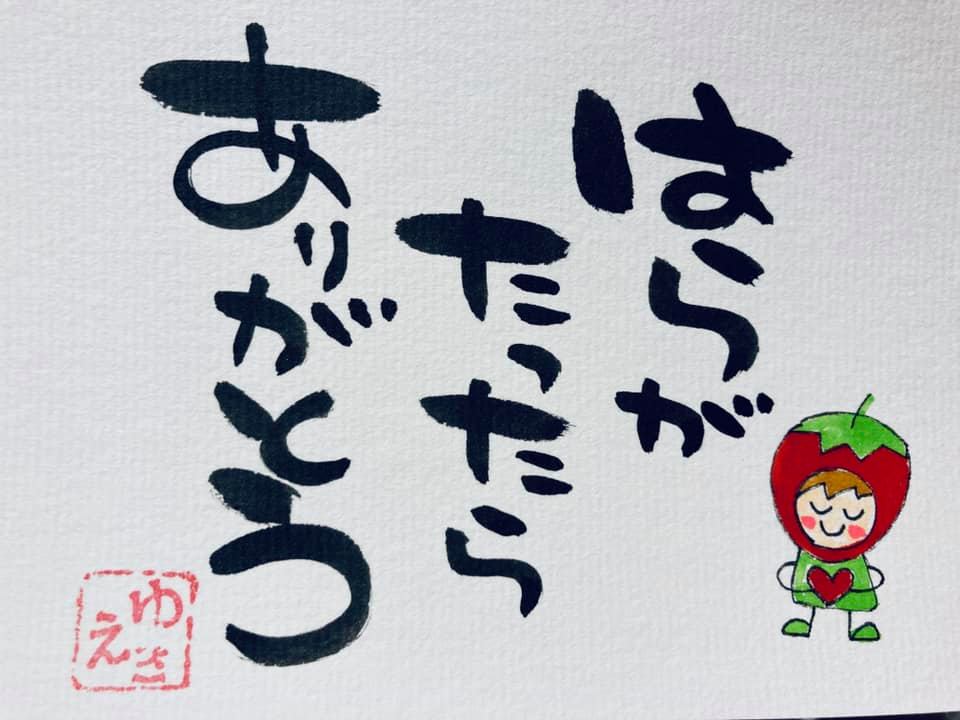 はらが
たったら
ありがとう
ゆ
え